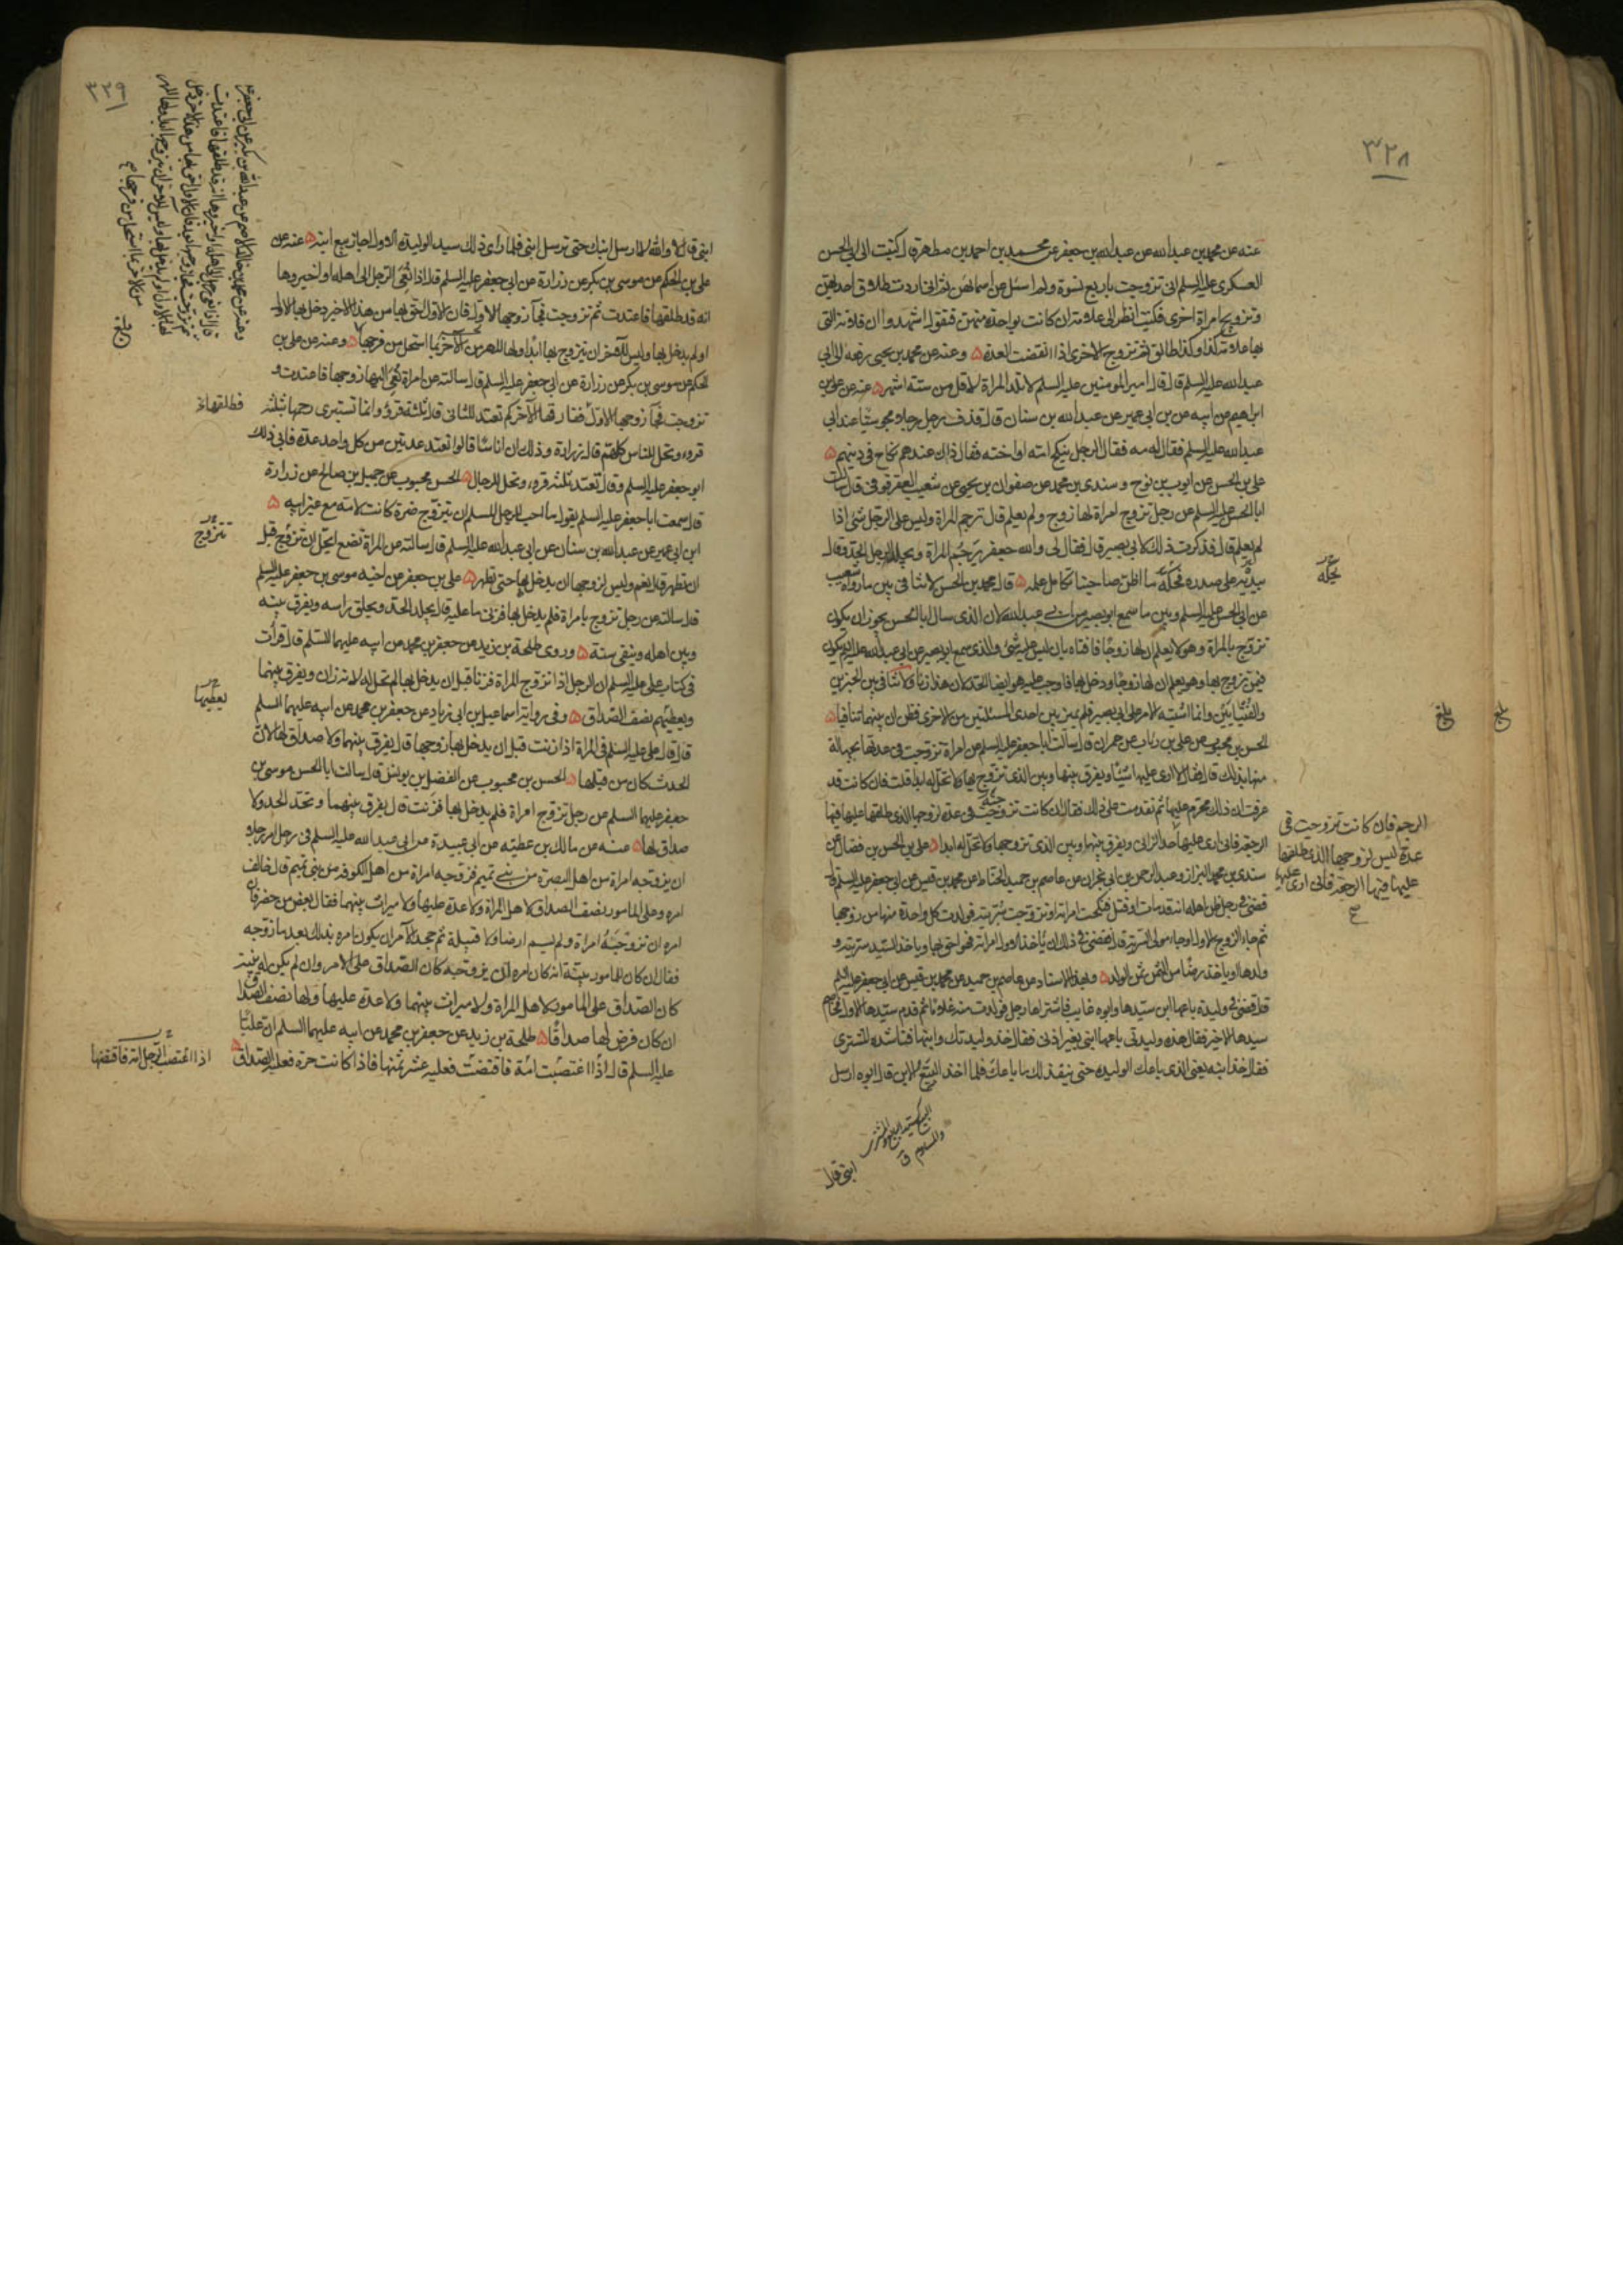 ٣٢٨
عنه عن محمد بن عبد الله عن عبد الله بن جعفر عن محمد بن احمد بن مطهر قال كتبت الى ابي الحسن
العسكرى عليه السلم انى تزوجت باربع نسوة ولم اسئل عن اسمائهن ثم انى اردت طلاق احديهن
وتزويج امراة اخرى فكتب انظر الى علامة ان كانت بواحدة منهن فتقول اشهدوا ان فلانة التى
بها علامة كذا وكذا طالق ثم تزوج الاخرى اذا انقضت العدة ۵ وعنه عن محمد بن يحيى رفعه الى ابى
عبد الله عليه السلم قال قال امير المومنين عليه السلم لا تلد المراة لاقل من ستة اشهر ۵ عنه عن على بن
ابرهيم عن ابيه عن بن ابى عمير عن عبد الله بن سنان قال قذف رجل رجلا مجوسيا عند ابى
عبد الله عليه السلم فقال له مه فقال الرجل ينكح امه او اخته فقال ذاك عندهم نكاح فى دينهم ۵
على بن الحسن عن ايوب بن نوح و سندى بن محمد عن صفوان بن يحيى عن شعيب العقرقوفى قال سالت
ابا الحسن عليه السلم عن رجل تزوج امراة لها زوج ولم يعلم قال ترجم المراة وليس على الرجل شئ اذا
لم يعلم قال فذكرت ذلك لابى بصير قال فقال لى والله جعفر ترجم المراة ويجلد الرجل الحد وقال
بيده على صدره فحكه ما اظن صاحبنا تكامل علمه ۵ قال محمد بن الحسن لا تنافى بين ما رواه شعيب
عن ابى الحسن عليه السلم وبين ما سمع ابو بصير من ابى عبد الله لان الذى سال ابا الحسن يجوز ان يكون
تزوج بالمراة وهو لا يعلم ان لها زوجا فافتاه بان ليس عليه شئ والذى سمع ابو بصير من ابى عبد الله عليه السلم يكون
فيمن تزوج بها وهو يعلم ان لها زوجا ودخل بها فاوجب عليه هو ايضا الحد لان هذا زنا ولا تنافى بين الخبرين
والفتيايين وانما اشتبه الامر على ابى بصير فلم يميز بين احدى المسئلتين من الاخرى فظن ان بينهما تنافيا ۵
الحسن بن محبوب عن على بن رئاب عن حمران قال سالت ابا جعفر عليه السلم عن امراة تزوجت فى عدتها بجهالة
منها بذلك قال فقال لا ارى عليها شيئا ويفرق بينها وبين الذى تزوج بها ولا تحل له ابدا قلت فان كانت قد
عرفت ان ذلك محرم عليها ثم تقدمت على ذلك فقال ان كانت تزوجت فى عدة لزوجها الذى طلقها عليها فيها
الرجعة فانى ارى عليها حد الزانى ويفرق بينها وبين الذى تزوجها ولا تحل له ابدا ۵ على بن الحسن بن فضال عن
سندى بن محمد البزاز وعبد الرحمن بن ابى نجران عن عاصم بن حميد الحناط عن محمد بن قيس عن ابى جعفر عليه السلم قال
قضى فى رجل ظن اهله انه قد مات او قتل فنكحت امراته او تزوجت سريته فولدت كل واحدة منهما من زوجها
ثم جاء الزوج الاول او جاء مولى السرية قال فقضى فى ذلك ان ياخذ الاول امراته فهو احق بها وياخذ السيد سريته و
ولدها او ياخذ رضا من الثمن ثمن الولد ۵ وبهذا الاسناد عن عاصم بن حميد عن محمد بن قيس عن ابى جعفر عليه السلم
قال قضى فى وليدة باعها ابن سيدها وابوه غايب فاشتراها رجل فولدت منه غلاما ثم قدم سيدها الاول فخاصم
سيدها الاخير فقال هذه وليدتى باعها ابنى بغير اذنى فقال خذ وليدتك وابنها فناشده المشترى
فقال خذ ابنه يعنى الذى باعك الوليدة حتى ينفذ لك ما باعك فلما اخذ البيع الابن قال ابوه ارسل
ابنى قال
يحكه
بلغ
بلغ
الرجم فان كانت تزوجت فى
عدة ليس لزوجها الذى طلقها
عليها فيها الرجعة فانى ارى عليها
٣٢٩
ابنى قال لا والله لا ارسل ابنك حتى ترسل ابنى فلما راى ذلك سيد الوليدة الاول اجاز بيع ابنه ۵ عنه عن
على بن الحكم عن موسى بن بكر عن زرارة عن ابى جعفر عليه السلم قال اذا نعى الرجل الى اهله او اخبروها
انه قد طلقها فاعتدت ثم تزوجت فجآء زوجها الاول قال فان الاول احق بها من هذا الاخير دخل بها الاول
او لم يدخل بها وليس للآخر ان يتزوج بها ابدا ولها المهر من الآخر بما استحل من فرجها ۵ وعنه عن على بن
الحكم عن موسى بن بكر عن زرارة عن ابى جعفر عليه السلم قال سالته عن امراة نعى اليها زوجها فاعتدت و
تزوجت فجآء زوجها الاول ففارقها الآخر كم تعتد للثانى قال ثلثة قروء وانما تستبرى رحمها بثلثة
قروء وتحل للناس كلهم قال زرارة وذلك ان اناسا قالوا تعتد عدتين من كل واحد عدة فابى ذلك
ابو جعفر عليه السلم وقال تعتد ثلثة قروء وتحل للرجال ۵ الحسن بن محبوب عن جميل بن صالح عن زرارة
قال سمعت ابا جعفر عليه السلم يقول ما احب للرجل المسلم ان يتزوج ضرة كانت لامه مع غير ابيه ۵
ابن ابى عمير عن عبد الله بن سنان عن ابى عبد الله عليه السلم قال سالته عن المراة تضع ايحل ان تتزوج قبل
ان تطهر قال نعم وليس لزوجها ان يدخل بها حتى تطهر ۵ على بن جعفر عن اخيه موسى بن جعفر عليه السلم
قال سالته عن رجل تزوج بامراة فلم يدخل بها فزنى ما عليه قال يجلد الحد ويحلق راسه ويفرق بينه
وبين اهله وينفى سنة ۵ وروى طلحة بن زيد عن جعفر بن محمد عن ابيه عليهما السلم قال قرات
فى كتاب على عليه السلم ان الرجل اذا تزوج المراة فزنا قبل ان يدخل بها لم تحل له لانه زان ويفرق بينهما
ويعطيهم نصف الصداق ۵ وفى رواية اسماعيل بن ابى زياد عن جعفر بن محمد عن ابيه عليهما السلم
قال قال على عليه السلم فى المراة اذا زنت قبل ان يدخل بها زوجها قال يفرق بينهما ولا صداق لها لان
الحدث كان من قبلها ۵ الحسن بن محبوب عن الفضل بن يونس قال سالت ابا الحسن موسى بن
جعفر عليهما السلم عن رجل تزوج امراة فلم يدخل بها فزنت قال يفرق بينهما وتحد الحد ولا
صداق لها ۵ عنه عن مالك بن عطيه عن ابى عبيدة عن ابى عبد الله عليه السلم فى رجل امر رجلا
ان يزوجه امراة من اهل البصرة من بنى تميم فزوجه امراة من اهل الكوفه من بنى تميم قال خالف
امره وعلى المامور نصف الصداق لاهل المراة ولا عدة عليها ولا ميراث بينهما فقال بعض من حضر فان
امره ان تزوجه امراة ولم يسم ارضا ولا قبيلة ثم جحد الآمر ان يكون امره بذلك بعد ما زوجه
فقال ان كان للمامور بينة انه كان امره ان يزوجه كان الصداق على الامر وان لم يكن له بينة
كان الصداق على المامور لاهل المراة ولا ميراث بينهما ولا عدة عليها ولها نصف الصداق
ان كان فرض لها صداقا ۵ طلحة بن زيد عن جعفر بن محمد عن ابيه عليهما السلم ان عليا
عليه السلم قال اذا اغتصبت امة فاقتضت فعليه عشر ثمنها فاذا كانت حرة فعليه الصداق ۵
فطلقها
تتزوج
يعطيها
اذا اغتصب الرجل امة فاقتضها